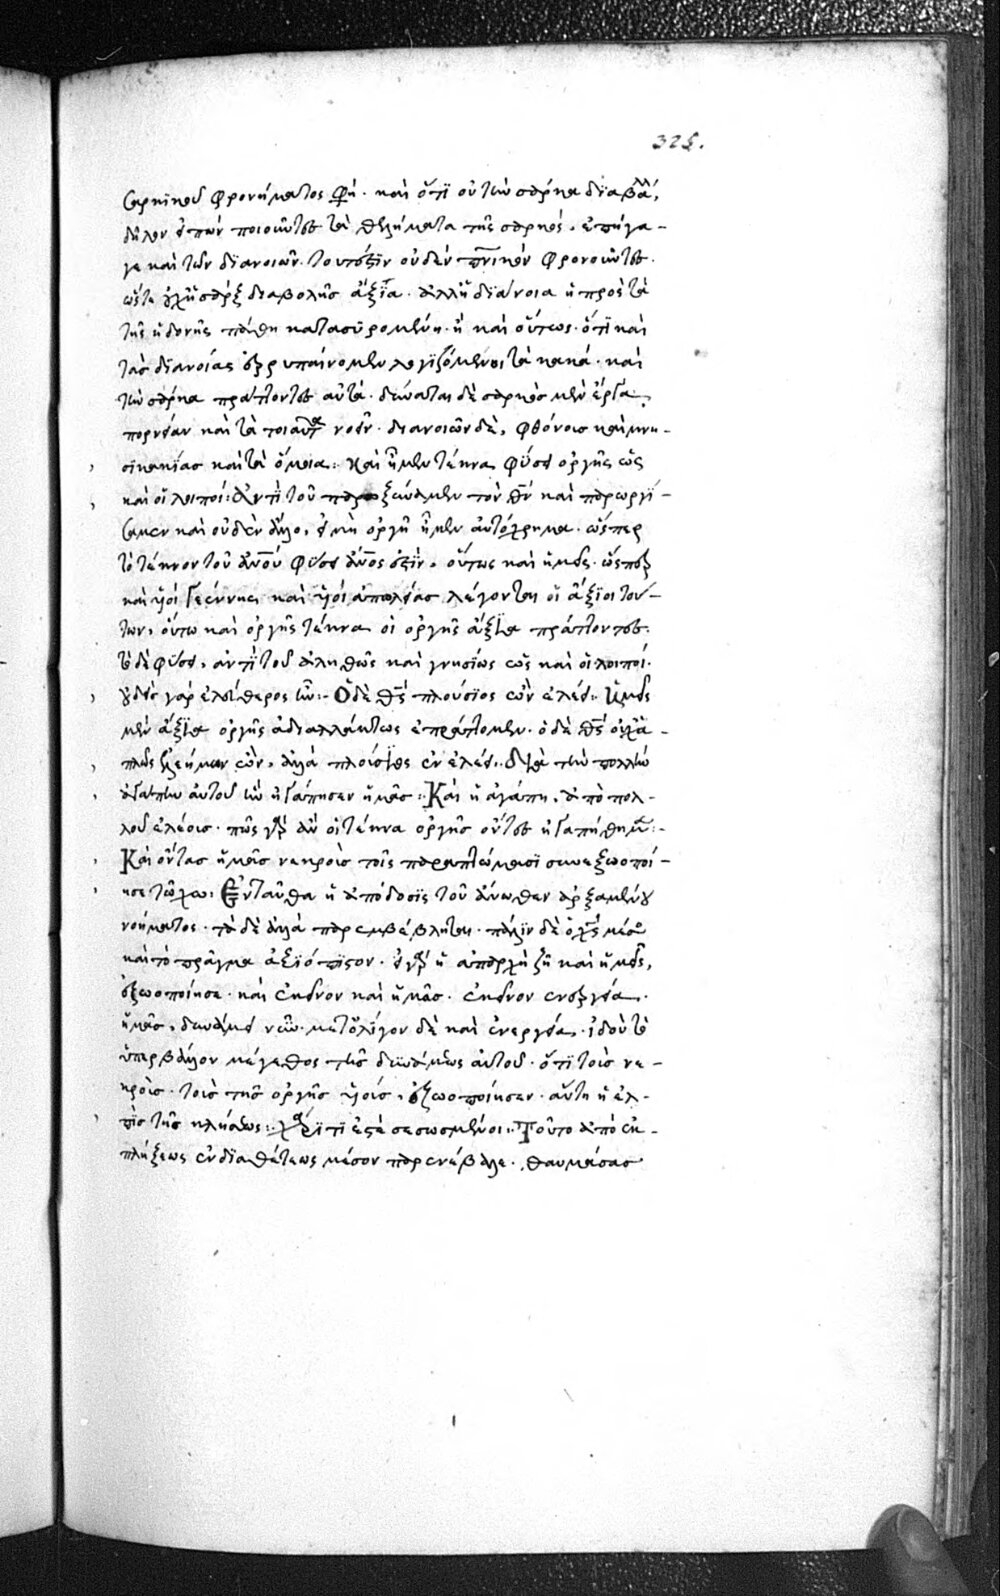 325.
σαρκικοῦ φρονήματος φη· καὶ ὅτι οὐ τὴν σάρκα διαβάλλει,
δῆλον εἰπών ποιοῦντες τὰ θελήματα τῆς σαρκός, ἐπήγα-
γε καὶ τῶν διανοιῶν· τουτέστιν οὐδέν πνικόν φρονοῦντες·
ὥστε οὐχ ἡ σάρξ διαβολῆς ἀξία· ἀλλ' ἡ διάνοια ἡ πρὸς τὰ
τῆς ἡδονῆς πάθη κατασυρομένη· ἢ καὶ οὕτως· ὅτι καὶ
τὰς διανοίας ἐρρυπαίνομεν λογιζόμενοι τὰ κακά· καὶ
τὴν σάρκα πράττοντες αὐτά· δύναται δὲ σαρκὸς μὲν ἔργα,
πορνείαν καὶ τὰ τοιαῦτα νοεῖν· διανοιῶν δὲ, φθόνους καὶ μνη-
σικακίας καὶ τὰ ὅμοια: Καὶ ἦμεν τέκνα φύσει ὀργῆς ὡς
καὶ οἱ λοιποί: Ἀντὶ τοῦ παρωξύναμεν τὸν θν καὶ παρωργί-
σαμεν καὶ οὐδὲν ἄλλο, εἰ μὴ ὀργὴ ἦμεν αὐτόχρημα· ὥσπερ
τὸ τέκνον τοῦ ἀνου φύσει ἀνος ἐστὶν, οὕτως καὶ ἡμεῖς· ὥσπερ
καὶ υἱοί γεέννης καὶ υἱοί ἀπωλείας λέγονται οἱ ἄξιοι τού-
των, οὕτω καὶ ὀργῆς τέκνα οἱ ὀργῆς ἄξια πράττοντες·
τὸ δὲ φύσει, ἀντὶ τοῦ ἀληθῶς καὶ γνησίως ὡς καὶ οἱ λοιποί·
οὐδεὶς γάρ ἐλεύθερος ἦν:- Ὁ δὲ θς πλούσιος ὢν ἐλέει: Ἡμεῖς
μὲν ἄξια ὀργῆς ἀδιαλλάκτως ἐπράττομεν· ὁ δὲ θς οὐχ ἁ-
πλῶς ἐλεήμων ὢν, ἀλλὰ πλούσιος ἐν ἐλέει: Διὰ τὴν πολλὴν
ἀγάπην αὐτοῦ ἣν ἠγάπησεν ἡμᾶς: Καὶ ἡ ἀγάπη, ἀπὸ πολ-
λοῦ ἐλέους· πῶς γὰρ ἂν οἱ τέκνα ὀργῆς ὄντες ἠγαπήθημεν:-
Καὶ ὄντας ἡμᾶς νεκροὺς τοῖς παραπτώμασι συνεζωοποί-
ησε τῷ χω: Ἐνταῦθα ἡ ἀπόδοσις τοῦ ἄνωθεν ἀρξαμένου
νοήματος· τὰ δὲ ἀλλὰ παρεμβέβληται· πάλιν δὲ ὁ χς μέσον
καὶ τὸ πρᾶγμα ἀξιόπιστον· εἰ γὰρ ἡ ἀπαρχὴ ζῇ καὶ ἡμεῖς,
ἐζωοποίησε· καὶ ἐκεῖνον καὶ ἡμᾶς· ἐκεῖνον ἐνεργεία·
ἡμᾶς, δυνάμει νῦν· μετ' ὀλίγον δὲ καὶ ἐνεργεία· ἰδοὺ τὸ
ὑπερβάλλον μέγεθος τῆς δυνάμεως αὐτοῦ· ὅτι τοὺς νε-
κροὺς· τοὺς τῆς ὀργῆς υἱούς, ἐζωοποίησεν· αὕτη ἡ ἐλ-
πὶς τῆς κλήσεως: Χάριτί ἐστε σεσωσμένοι: Τοῦτο ἀπὸ ἐκ-
πλήξεως ἐνδιαθέτως μέσον παρενέβαλε· θαυμάσας